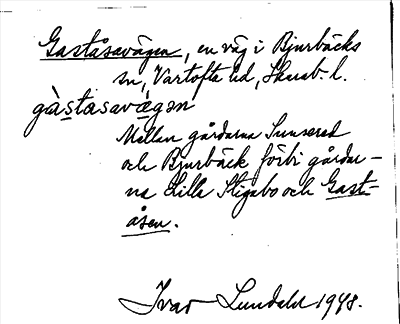 Gaståsavägen, en väg i Bjurbäcks
sn, Vartofta hd, Skarab. l.
gàstasavägən
Mellan gårdarna Sunnered
och Bjurbäck förbi gårdar-
na Lilla Stigabo och Gast-
åsen.
Ivar Lundahl 1948.